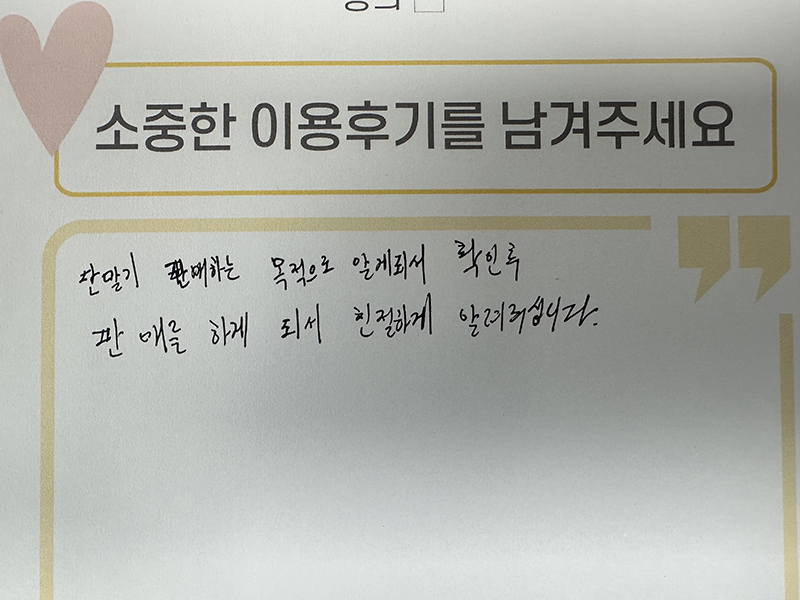 동의
소중한 이용후기를 남겨주세요
안말기 판매하는 목적으로 알게되서 확인후
판매를 하게 되서 친절하게 알려주십니다.